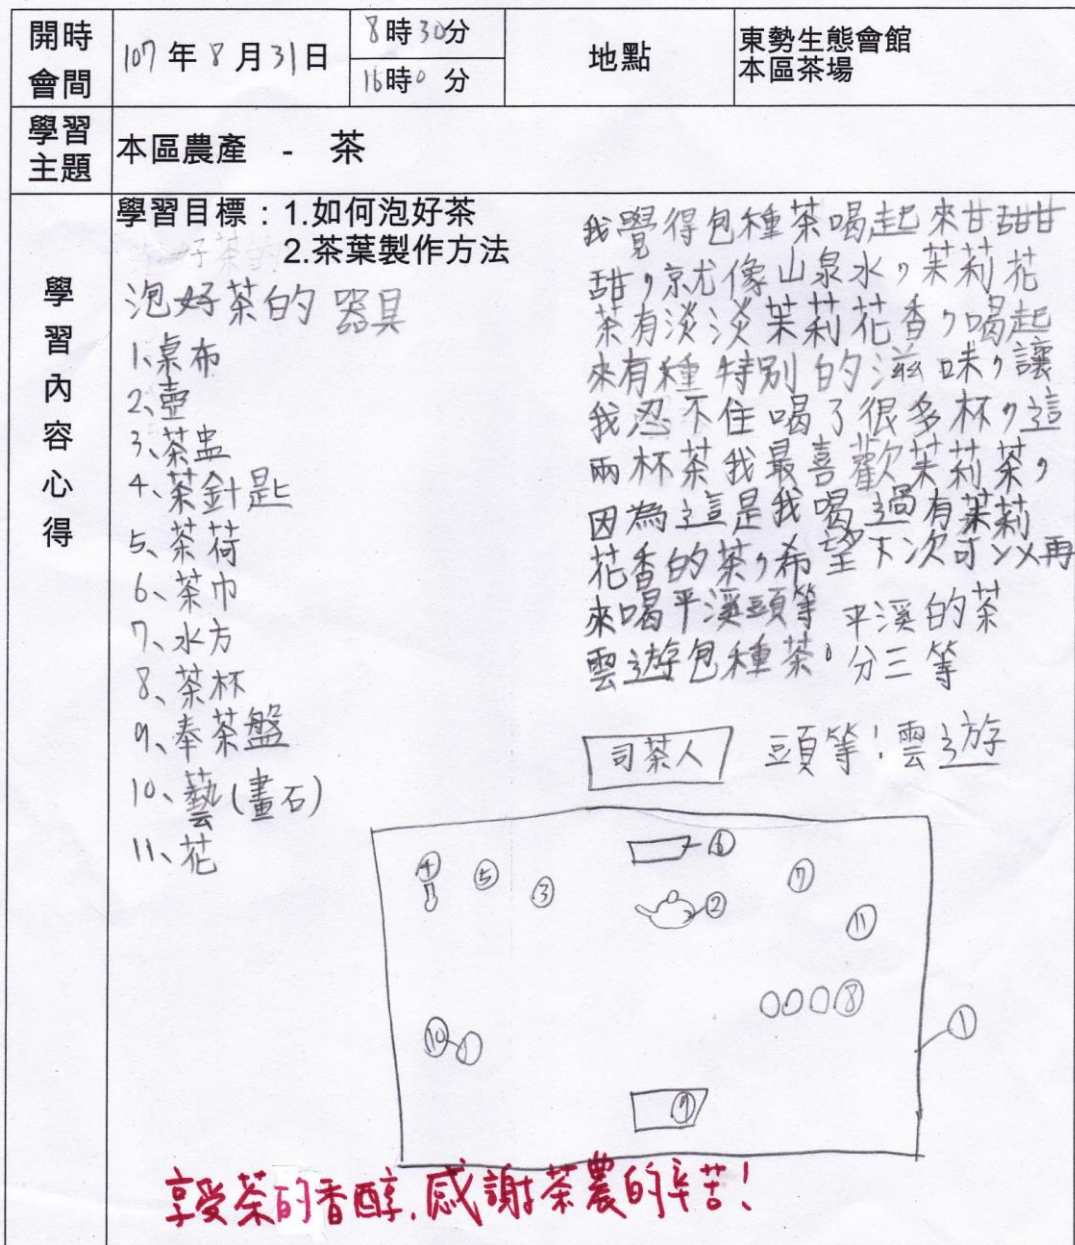 開時
會間
107年8月31日
8時30分
16時0分
地點
東勢生態會館
本區茶場
學習
主題
本區農產 - 茶
學習內容心得
學習目標：1.如何泡好茶
2.茶葉製作方法
泡好茶的器具
1、桌布
2、壺
3、茶盅
4、茶針匙
5、茶荷
6、茶巾
7、水方
8、茶杯
9、奉茶盤
10、藝(畫石)
11、花
我覺得包種茶喝起來甘甜甘
甜，就像山泉水，茉莉花
茶有淡淡茉莉花香，喝起
來有種特別的滋味，讓
我忍不住喝了很多杯，這
兩杯茶我最喜歡茉莉茶，
因為這是我喝過有茉莉
花香的茶，希望下次可以再
來喝平溪頭等
雲遊包種茶。
平溪的茶
分三等
頭等：雲遊
司茶人
④ ⑤ ③ ⑥ ② ⑦ ⑪
⑧ ① ⑩
⑨
享受茶的香醇.感謝茶農的辛苦！